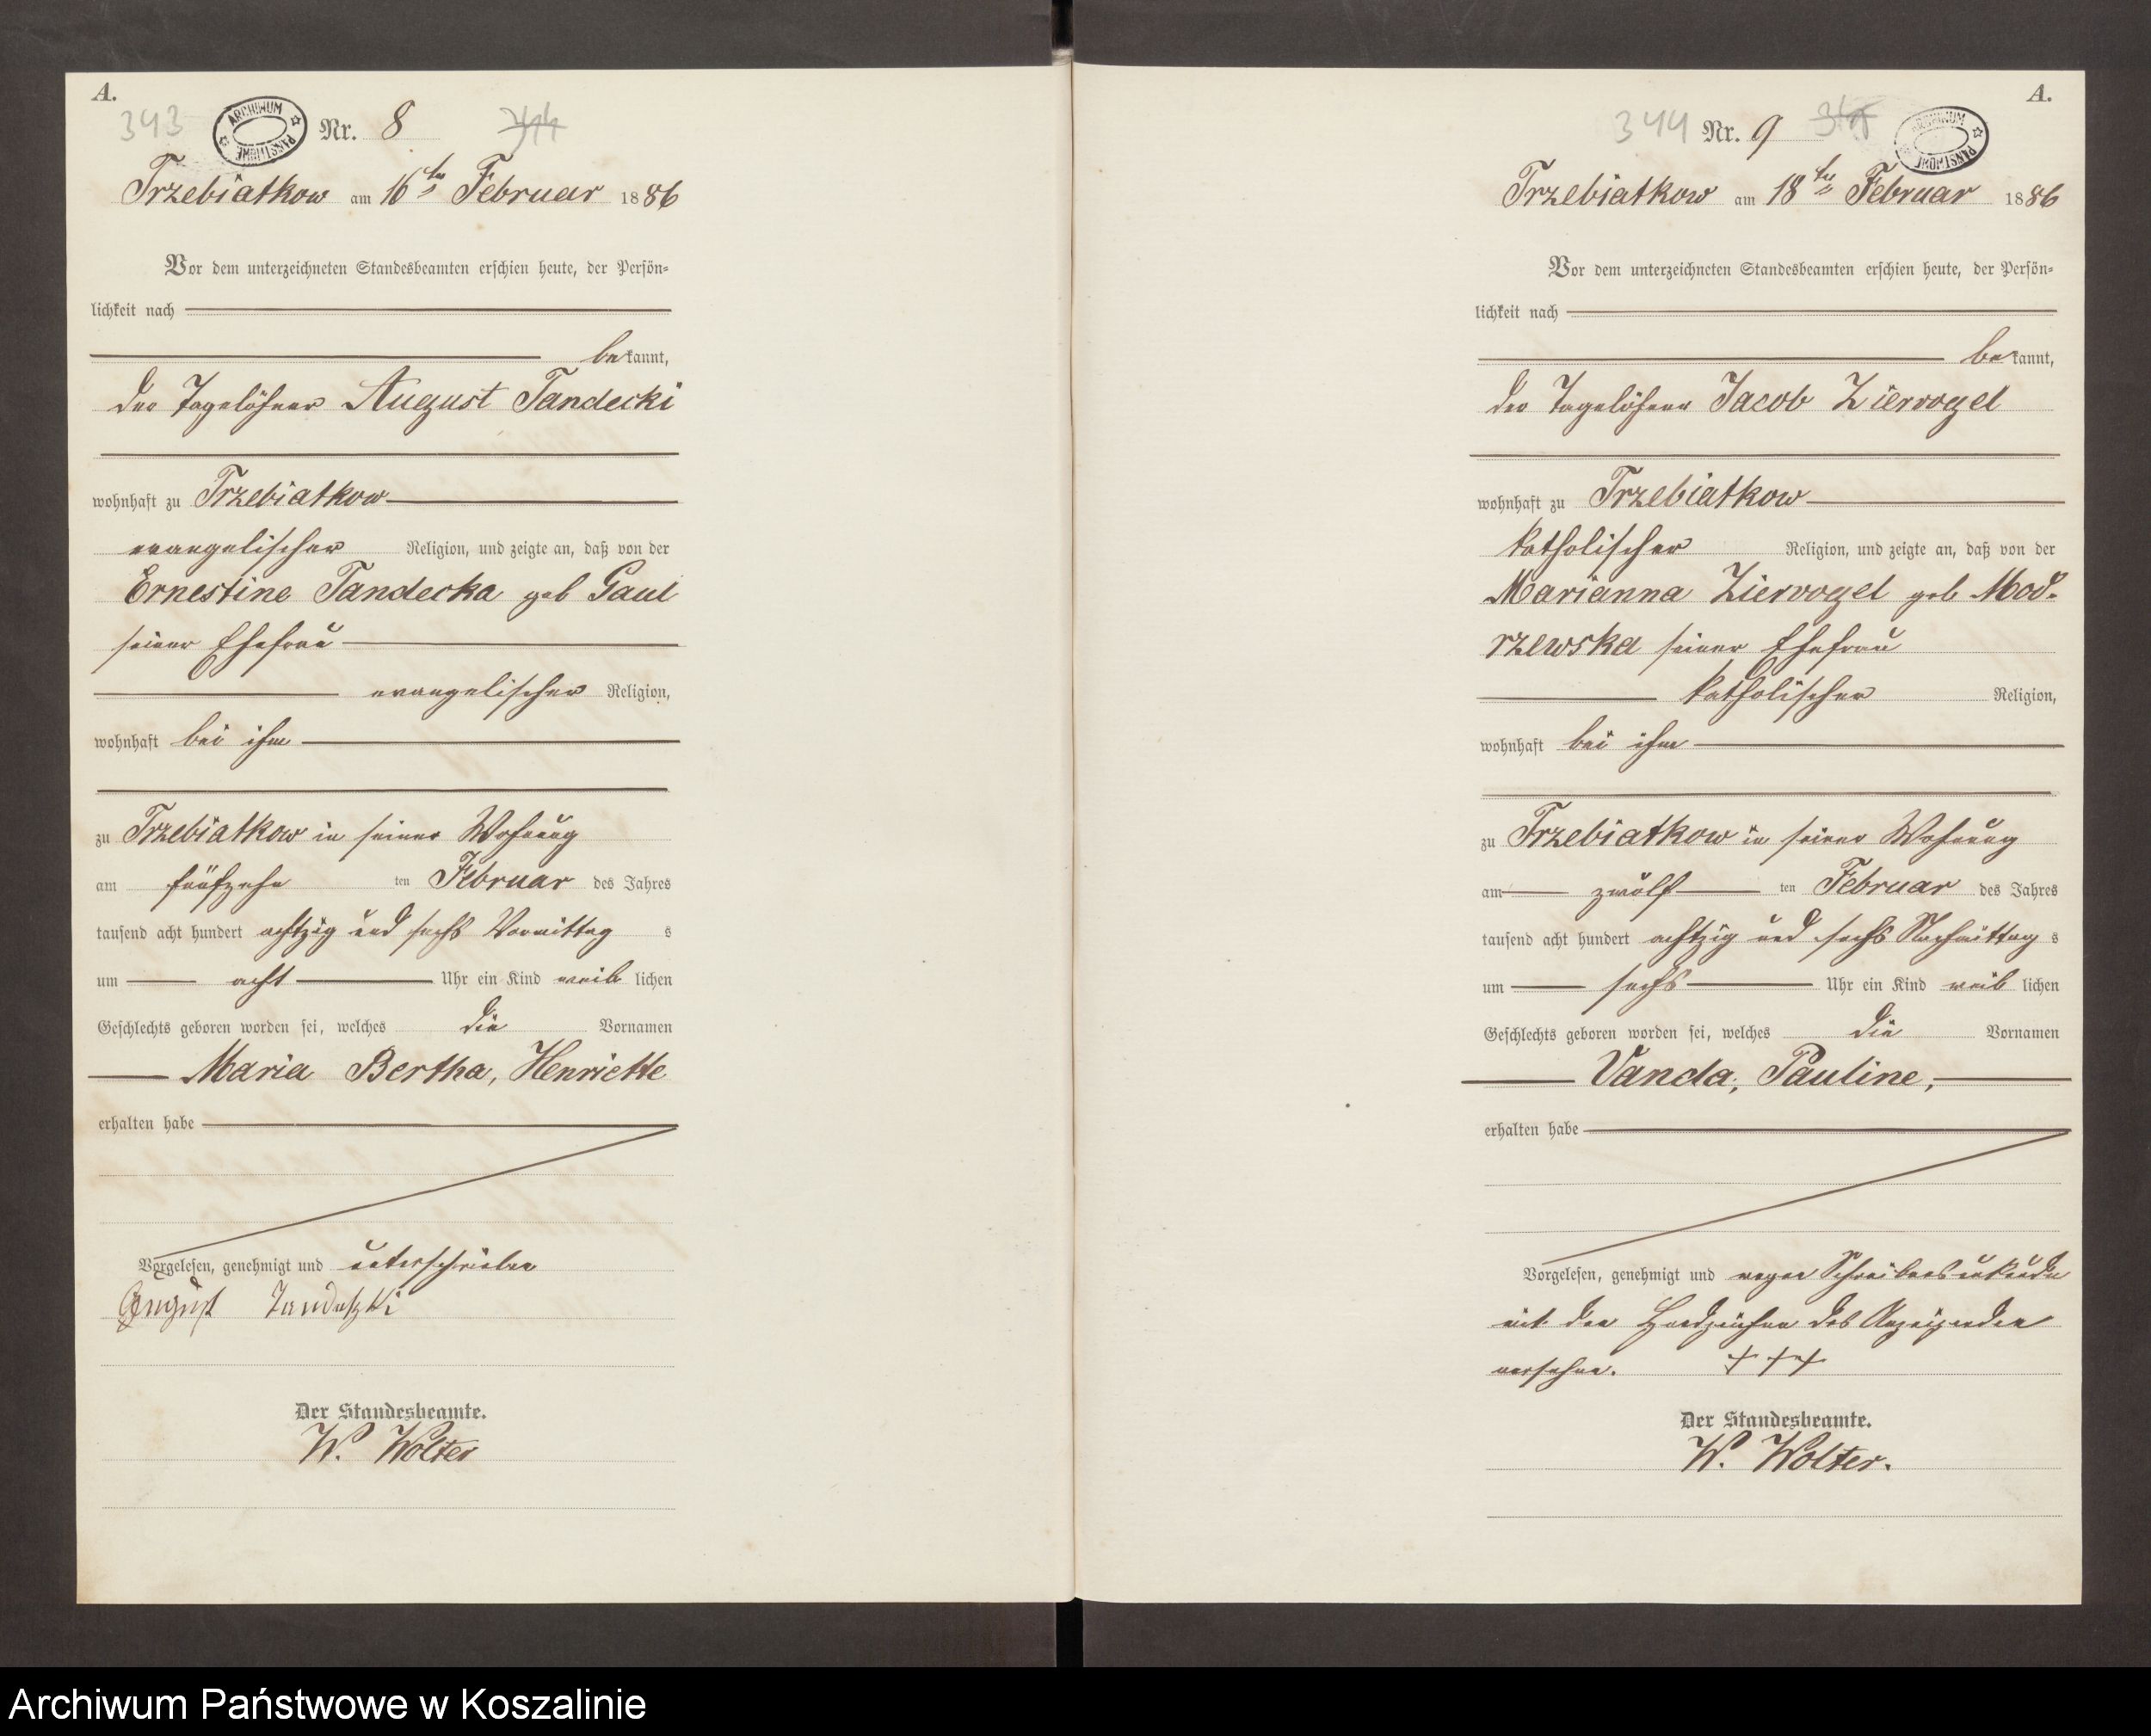 A.
343
ARCHIWUM PAŃSTWOWE
Nr. 8
344
Trzebiatkow am 16ten Februar 1886
Vor dem unterzeichneten Standesbeamten erschien heute, der Persön-
lichkeit nach
bekannt,
der Tagelöhner August Tandecki
wohnhaft zu Trzebiatkow
evangelischer Religion, und zeigte an, daß von der
Ernestine Tandecka geb Gaul
seiner Ehefrau
evangelischer Religion,
wohnhaft bei ihm
zu Trzebiatkow in seiner Wohnung
am fünfzehn ten Februar des Jahres
tausend acht hundert achtzig und sechs Vormittag s
um acht Uhr ein Kind weib lichen
Geschlechts geboren worden sei, welches die Vornamen
Maria Bertha, Henriette
erhalten habe
Vorgelesen, genehmigt und unterschrieben
August Tandetzki
Der Standesbeamte.
W. Wolter
A.
344
Nr. 9
345
ARCHIWUM PAŃSTWOWE
Trzebiatkow am 18ten Februar 1886
Vor dem unterzeichneten Standesbeamten erschien heute, der Persön-
lichkeit nach
bekannt,
der Tagelöhner Jacob Ziervogel
wohnhaft zu Trzebiatkow
katholischer Religion, und zeigte an, daß von der
Marianna Ziervogel geb Mod-
rzewska seiner Ehefrau
katholischer Religion,
wohnhaft bei ihm
zu Trzebiatkow in seiner Wohnung
am zwölf ten Februar des Jahres
tausend acht hundert achtzig und sechs Nachmittag s
um sechs Uhr ein Kind weib lichen
Geschlechts geboren worden sei, welches die Vornamen
Vanda, Pauline,
erhalten habe
Vorgelesen, genehmigt und wegen Schreibensunkunde
mit den Handzeichen des Anzeigenden
versehen. +++
Der Standesbeamte.
W. Wolter.
Archiwum Państwowe w Koszalinie